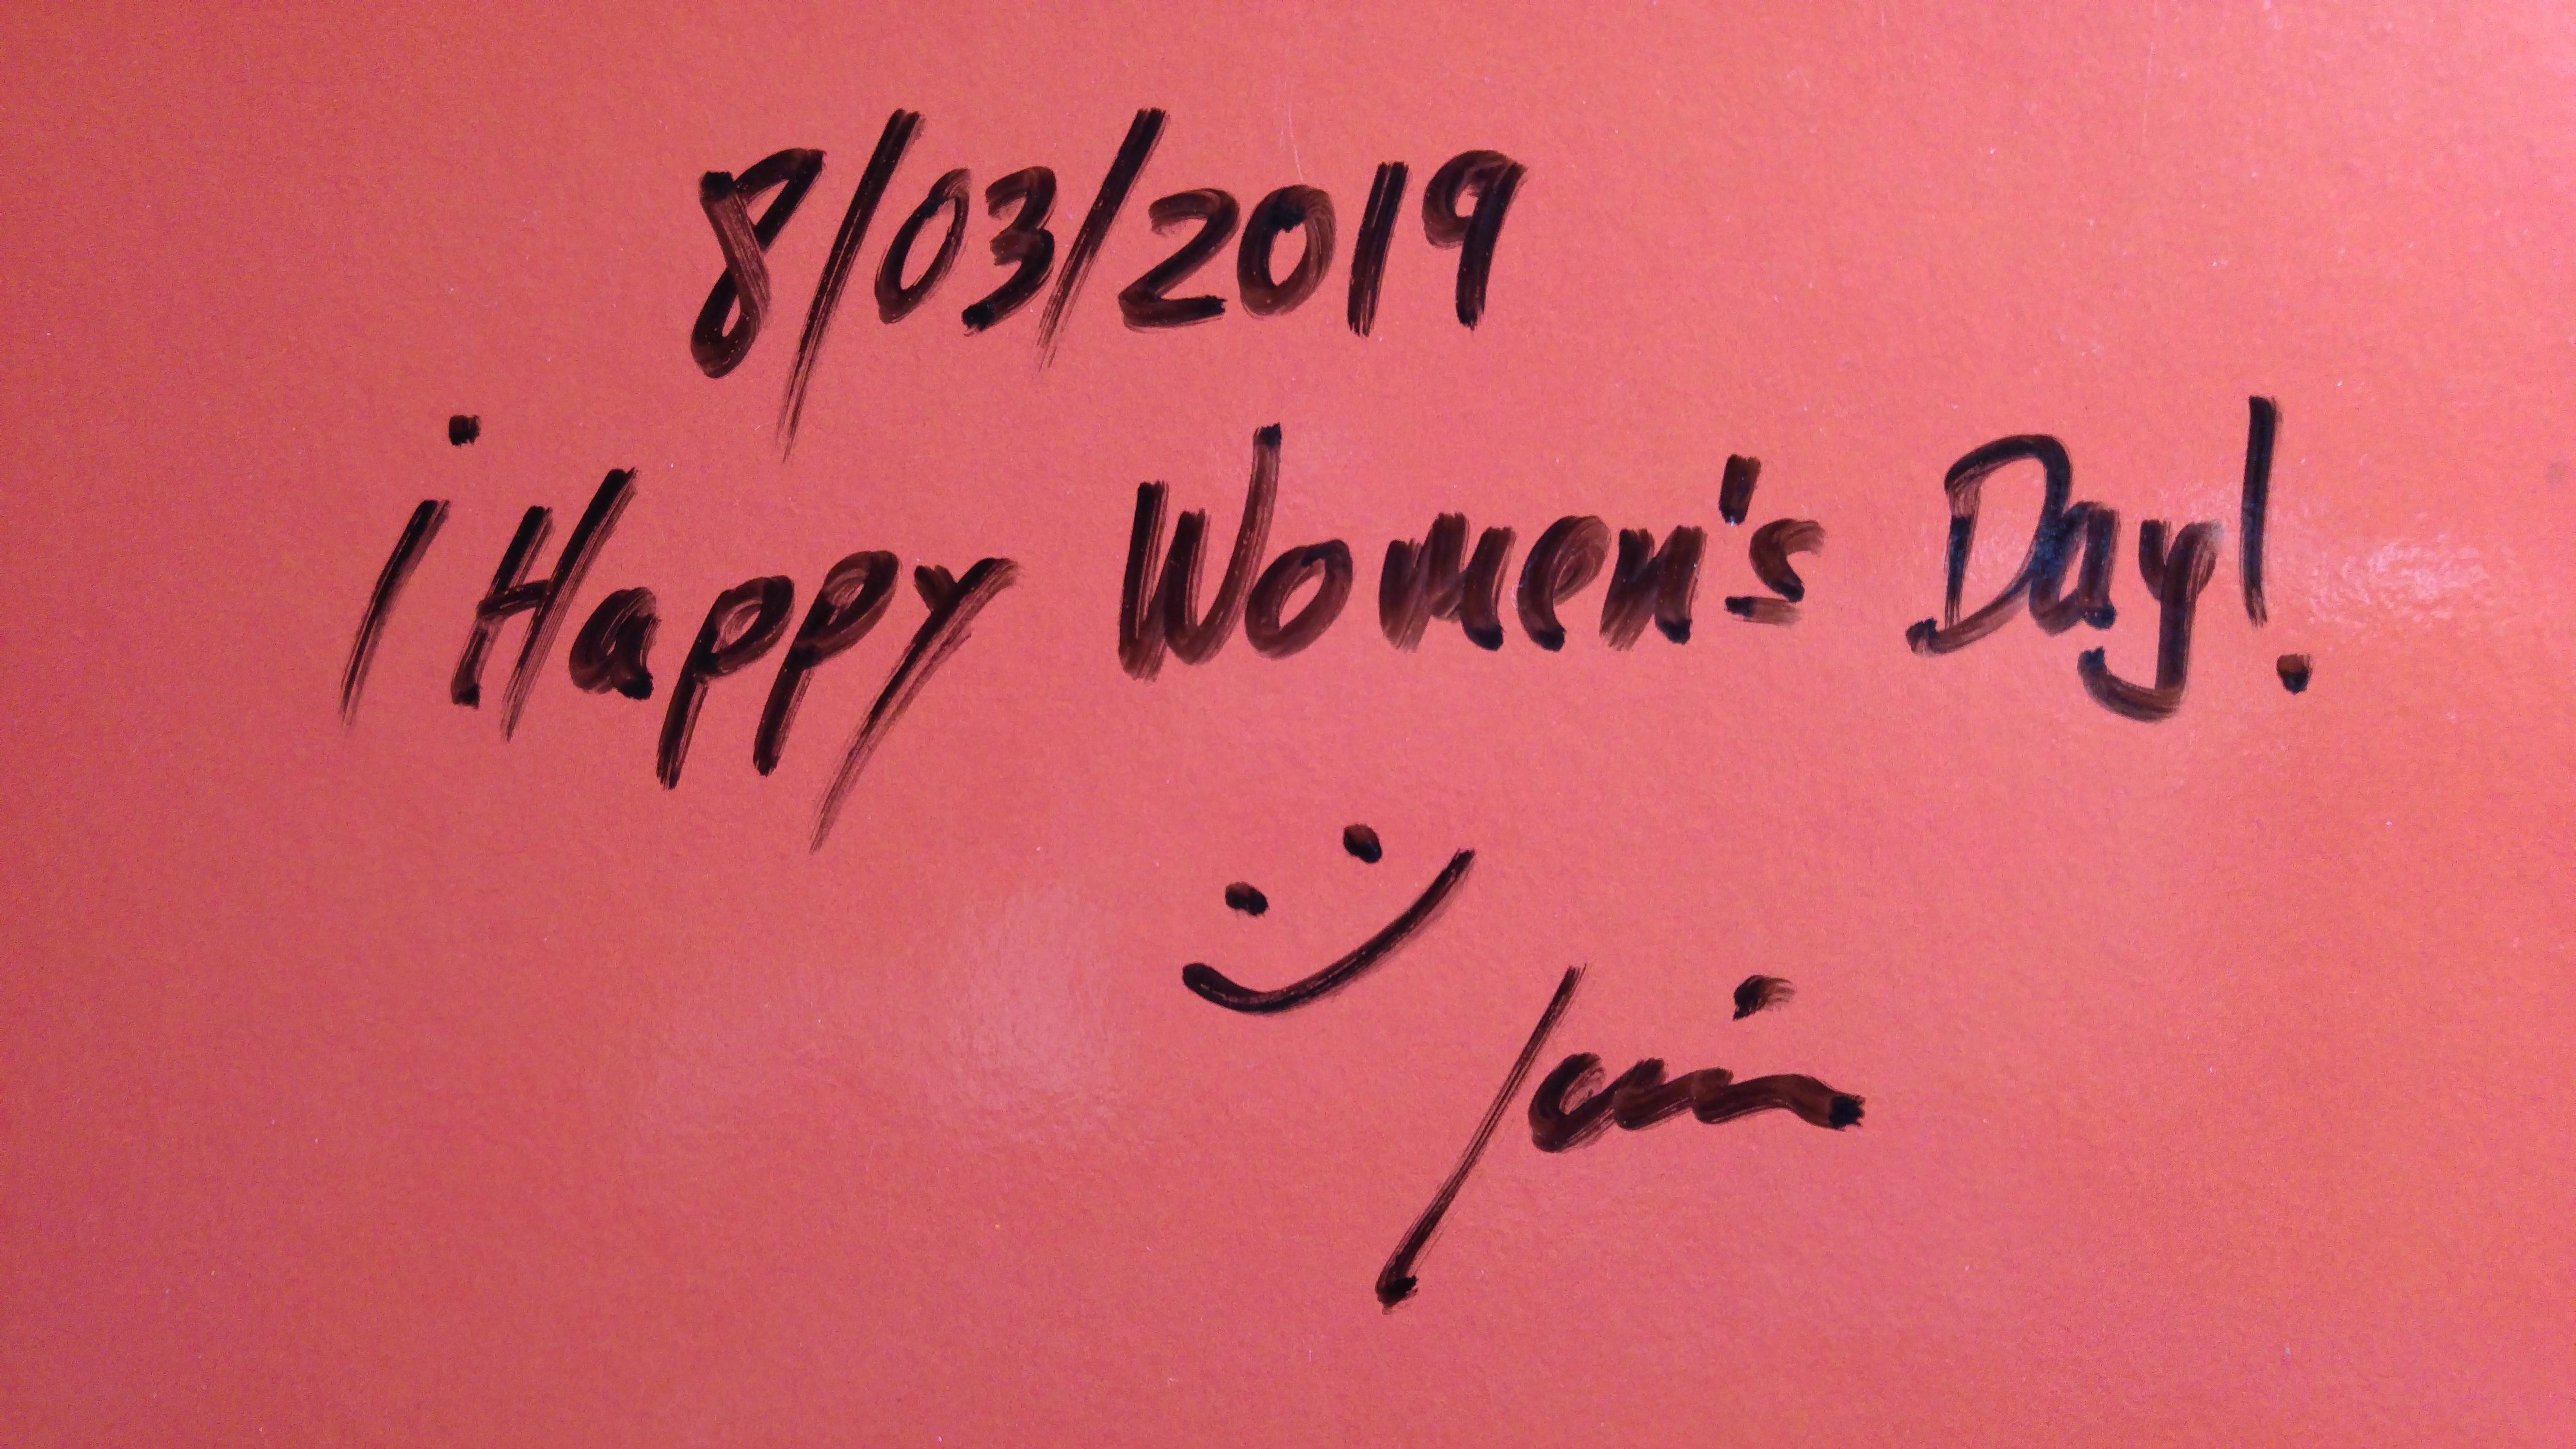 8/03/2019
¡Happy Women's Day!
:)